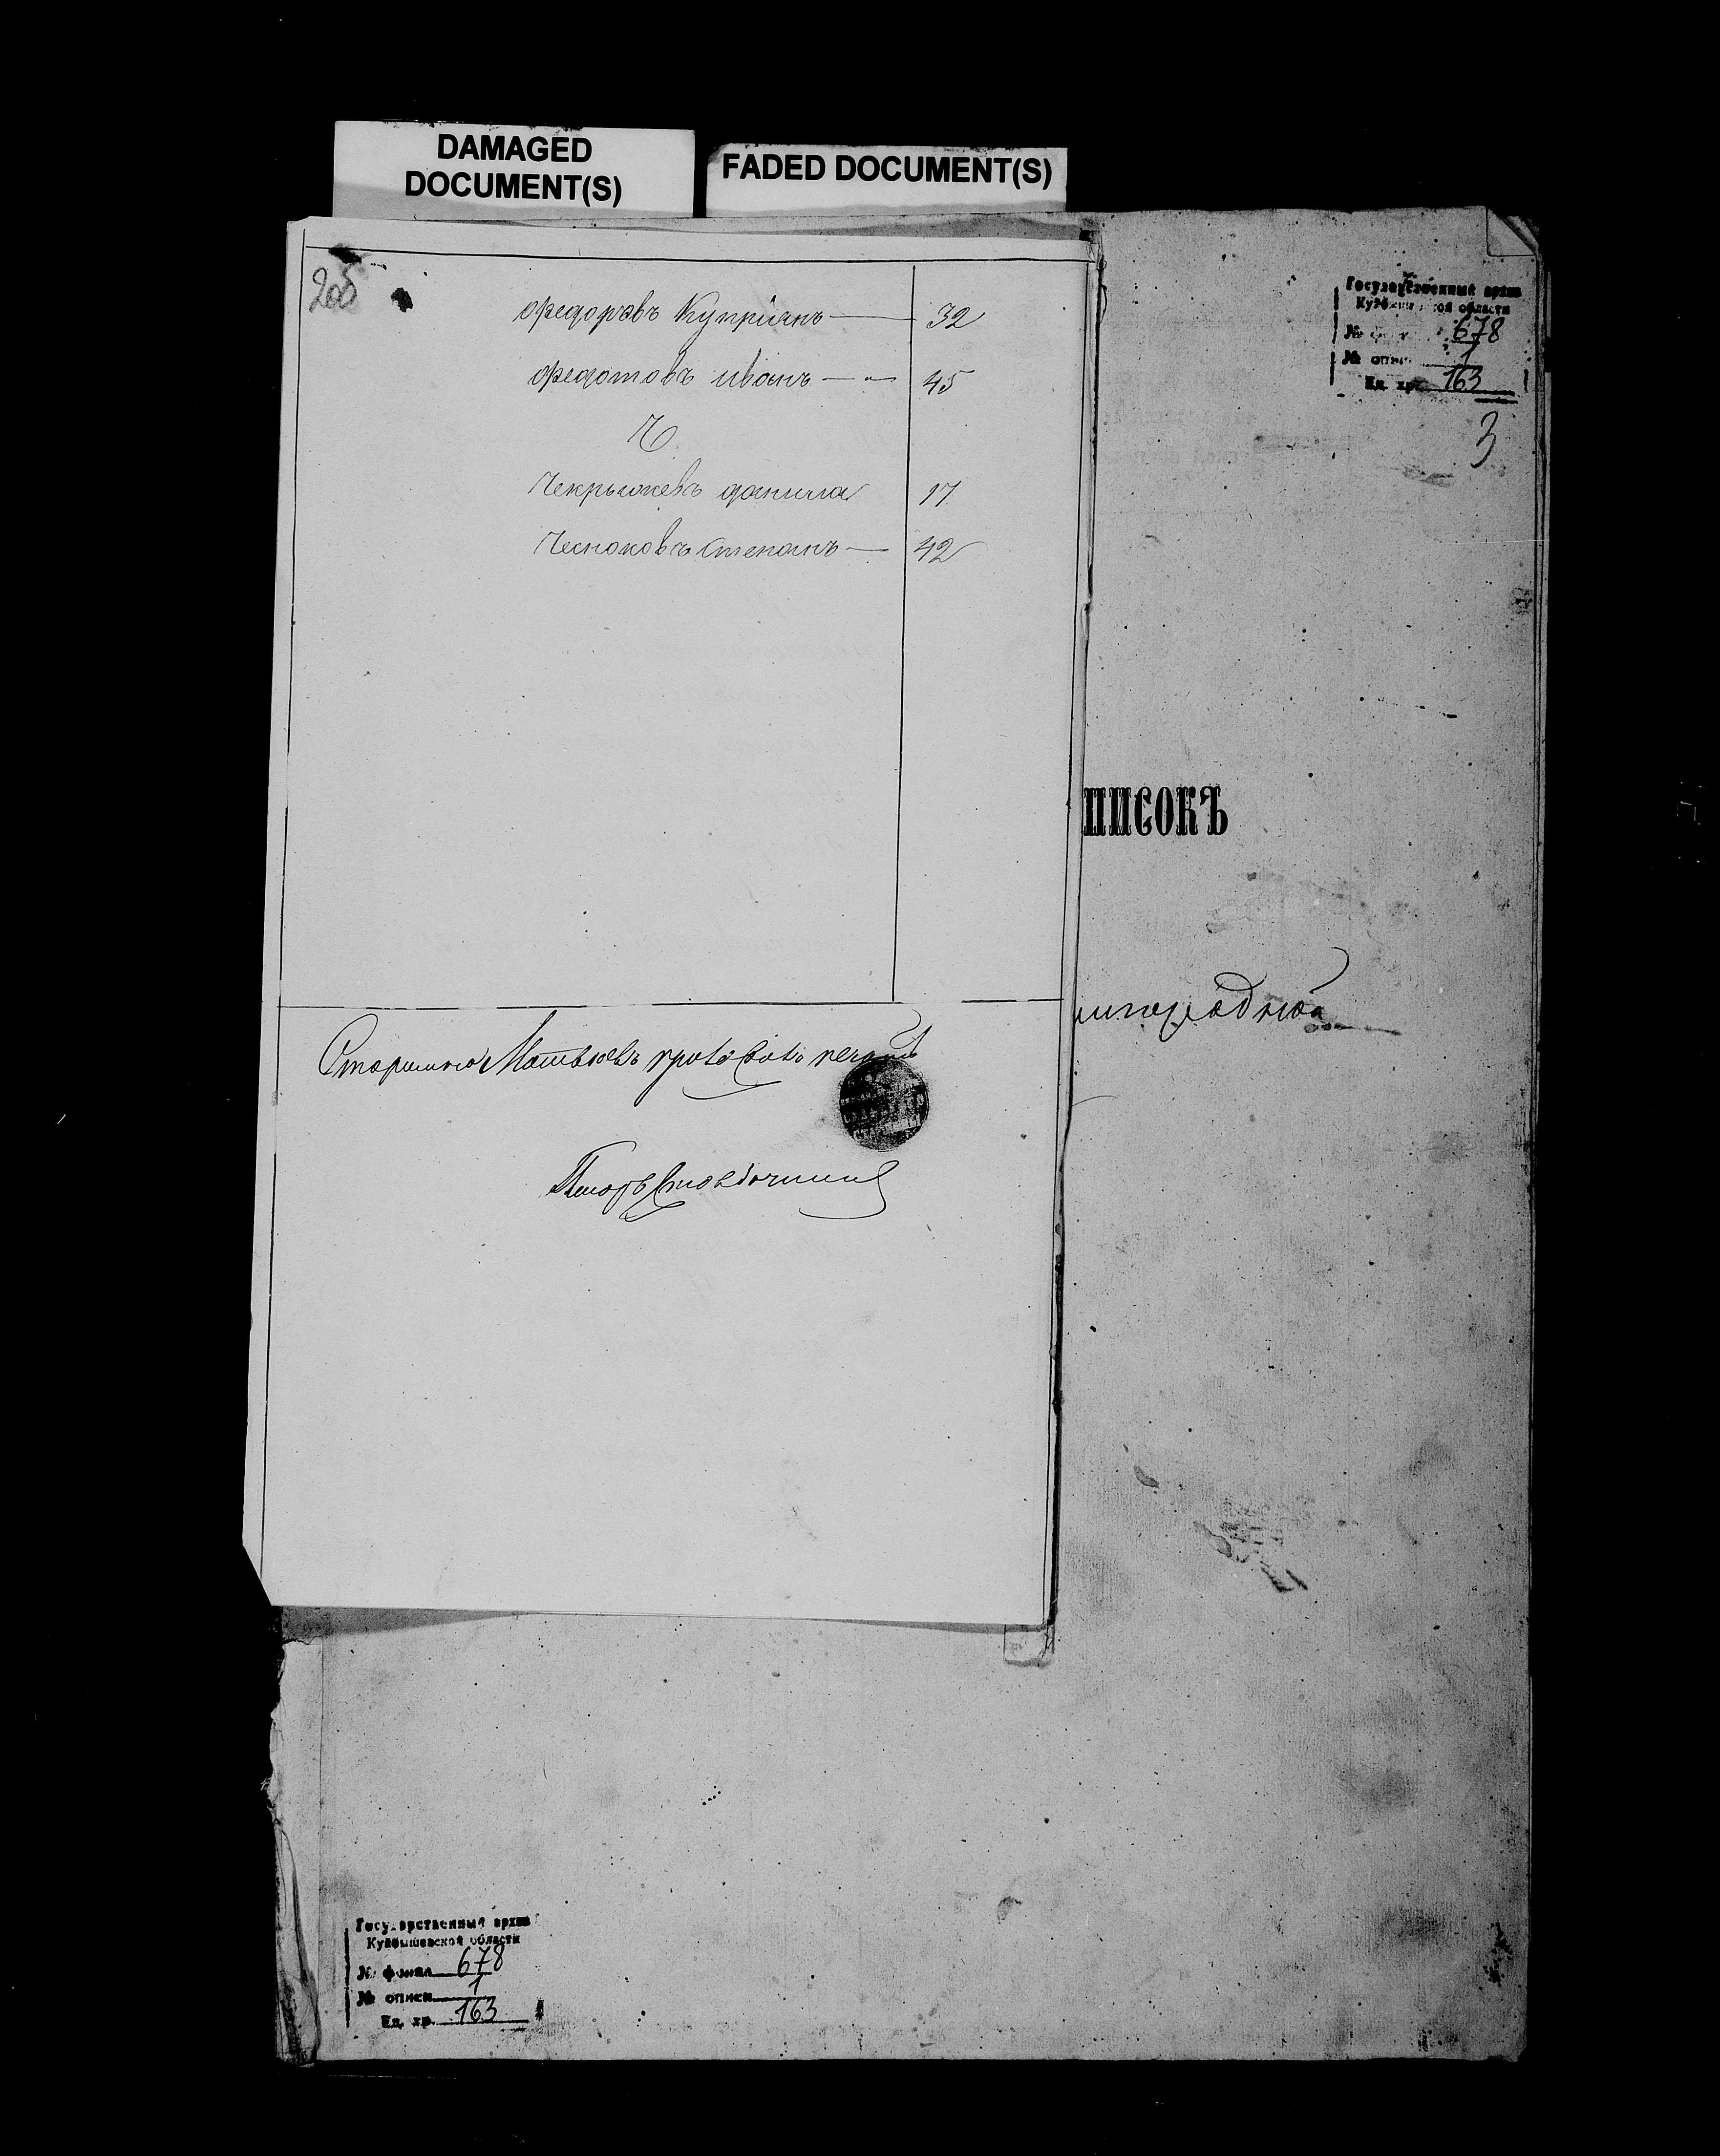 DAMAGED
DOCUMENT(S)
FADED DOCUMENT(S)
205
Федоровъ Купріянъ — 32
Федотовъ Иванъ — " 45
Ч.
Чекрыжевъ Данила 17
Чесноковъ Степанъ — 42
Старшина Матвѣевъ
Государственный архив
Куйбышевской области
678
№ опис 1
Ед. хр. 163
3
писокъ
Государственный архив
Куйбышевской области
№ фонда 678
№ описи 1
Ед. хр. 163